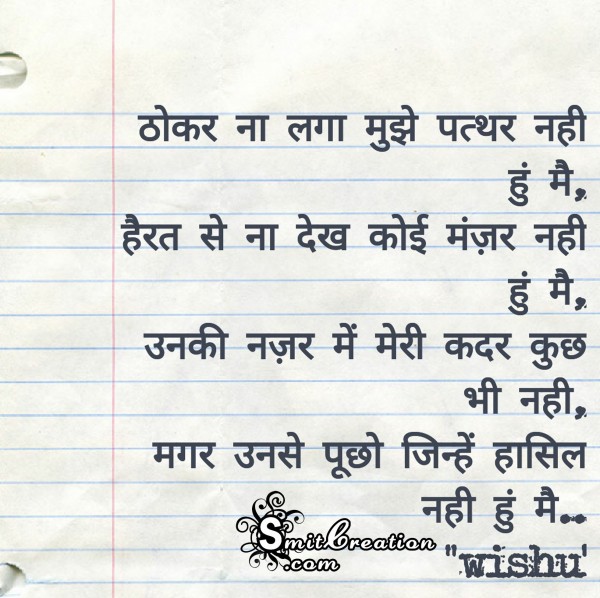 ठोकर ना लगा मुझे पत्थर नही
हुं मै,
हैरत से ना देख कोई मंज़र नही
हुं मै,
उनकी नज़र में मेरी कदर कुछ
भी नही,
मगर उनसे पूछो जिन्हें हासिल
नही हुं मै..
SmitCreation
.com
"wishu'